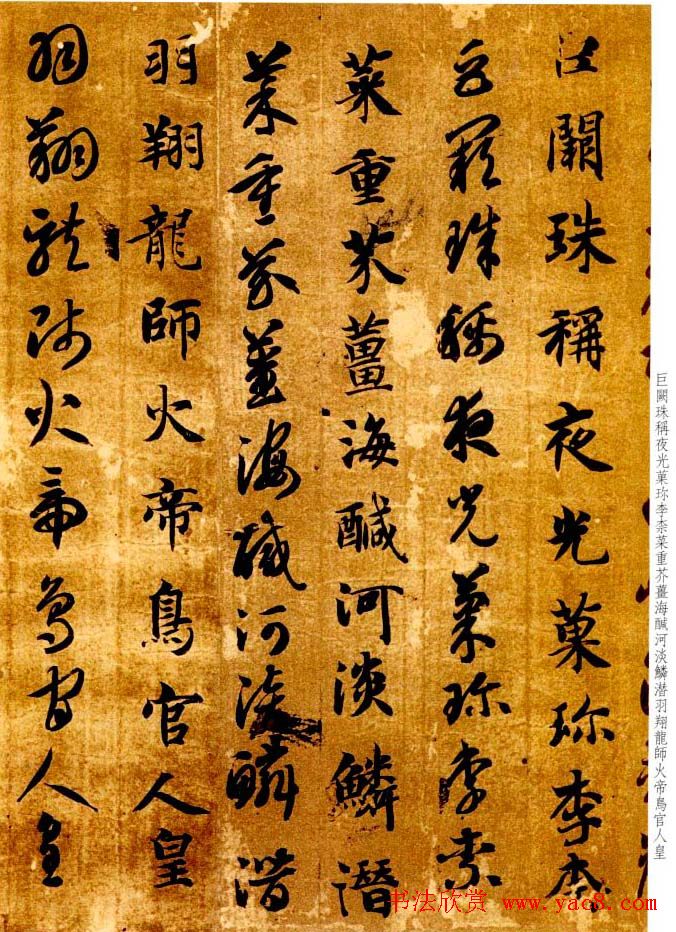 巨闕珠稱夜光菓珎李柰菜重芥薑海醎河淡鱗潜羽翔龍師火帝鳥官人皇
巨闕珠稱夜光菓珎李柰
巨闕珠稱夜光菓珎李柰
菜重芥薑海醎河淡鱗潜
菜重芥薑海醎河淡鱗潜
羽翔龍師火帝鳥官人皇
羽翔龍師火帝鳥官人皇
书法欣赏 www.yac8.com